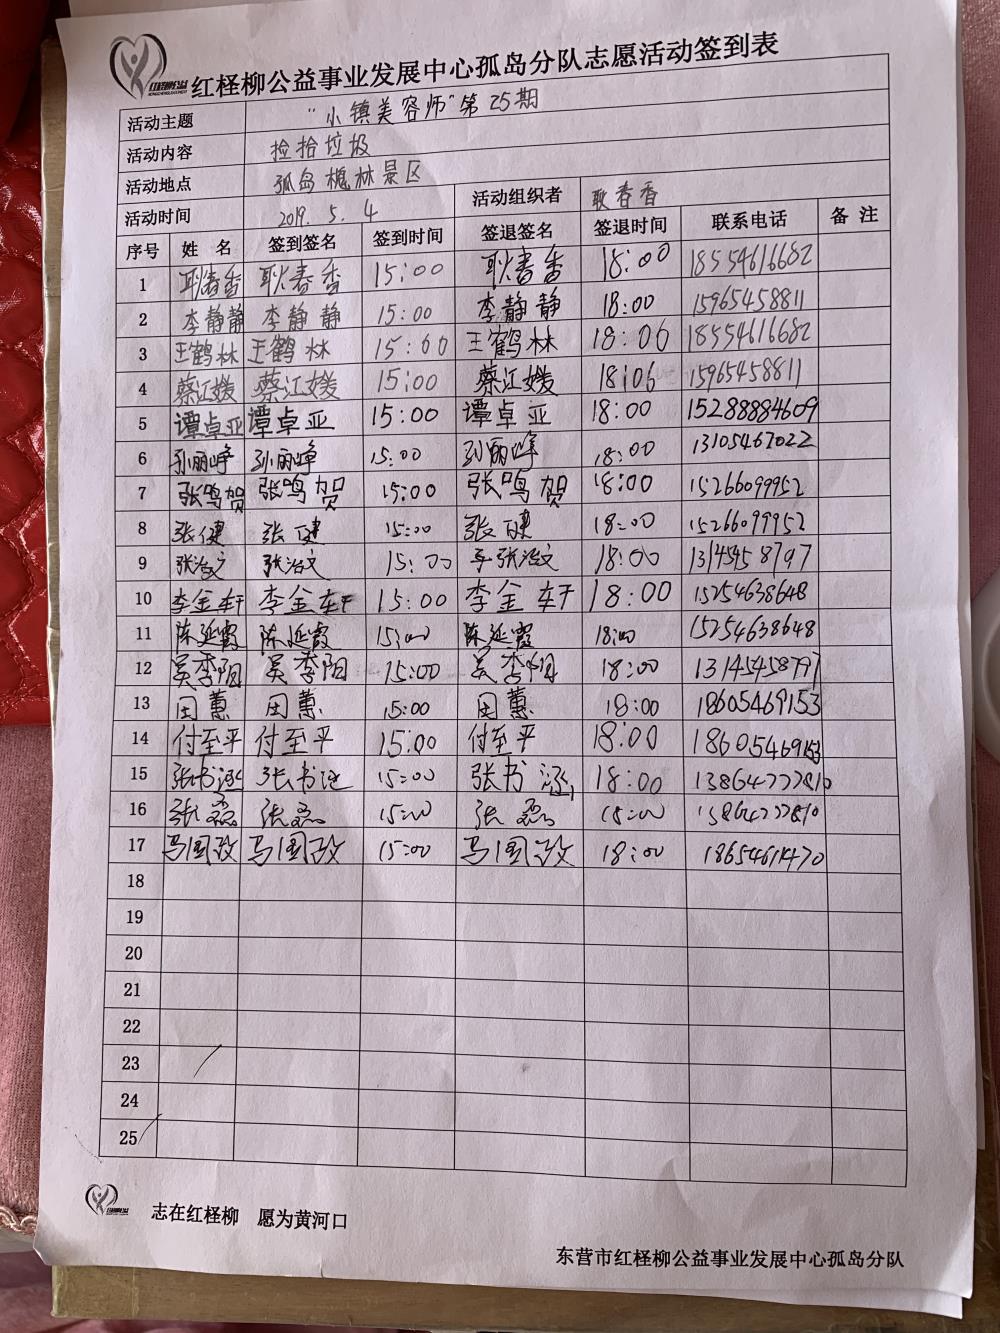 红柽柳公益事业发展中心孤岛分队志愿活动签到表
活动主题 "小镇美容师"第25期
活动内容 捡拾垃圾
活动地点 孤岛槐林景区
活动时间 2019.5.4 活动组织者 耿春香
序号 姓名 签到签名 签到时间 签退签名 签退时间 联系电话 备注
1 耿春香 耿春香 15:00 耿春香 18:00 18554616682
2 李静静 李静静 15:00 李静静 18:00 15965458811
3 王鹤林 王鹤林 15:00 王鹤林 18:06 18554616682
4 蔡江媛 蔡江媛 15:00 蔡江媛 18:06 15965458811
5 谭卓亚 谭卓亚 15:00 谭卓亚 18:00 15288884609
6 孙丽峥 孙丽峥 15:00 孙丽峥 18:00 13105467022
7 张鸣贺 张鸣贺 15:00 张鸣贺 18:00 15266099952
8 张健 张健 15:00 张健 18:00 15266099952
9 张治文 张治文 15:00 张治文 18:00 13145458797
10 李金轩 李金轩 15:00 李金轩 18:00 15254638648
11 陈延霞 陈延霞 15:00 陈延霞 18:00 15254638648
12 吴季阳 吴季阳 15:00 吴季阳 18:00 13145458797
13 田蕙 田蕙 15:00 田蕙 18:00 18605469153
14 付至平 付至平 15:00 付至平 18:00 18605469153
15 张书涵 张书涵 15:00 张书涵 18:00 13864777810
16 张磊 张磊 15:00 张磊 15:00 13864777810
17 马国政 马国政 15:00 马国政 18:00 18654611470
18
19
20
21
22
23
24
25
志在红柽柳 愿为黄河口
东营市红柽柳公益事业发展中心孤岛分队